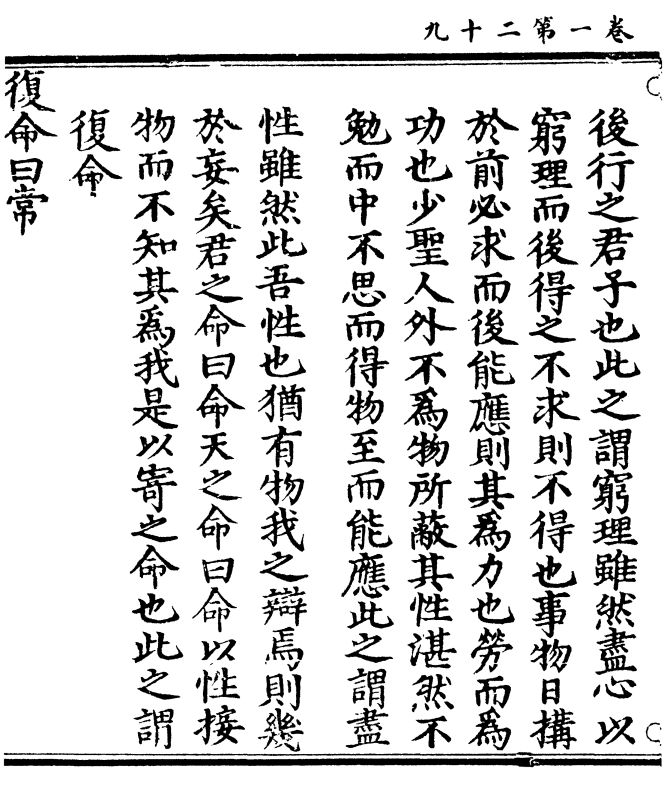 卷一第二十九
後行之君子也此之謂窮理雖然盡心以
窮理而後得之不求則不得也事物日搆
於前必求而後能應則其爲力也勞而爲
功也少聖人外不爲物所蔽其性湛然不
勉而中不思而得物至而能應此之謂盡
性雖然此吾性也猶有物我之辯焉則幾
於妄矣君之命曰命天之命曰命以性接
物而不知其爲我是以寄之命也此之謂
復命
復命曰常